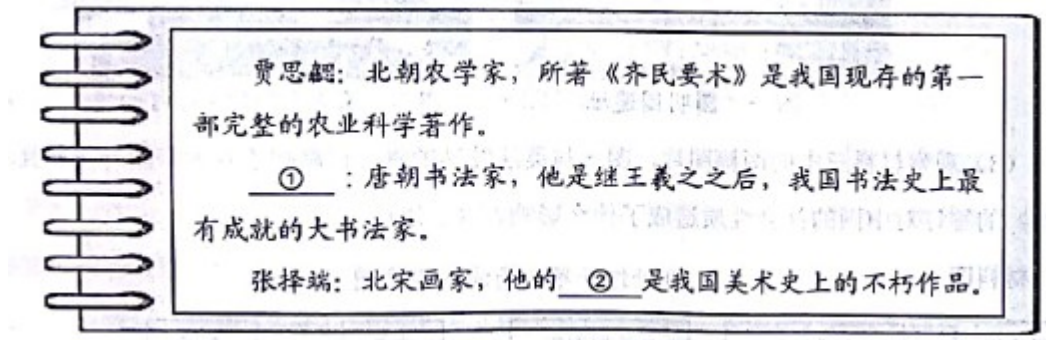 贾思勰：北朝农学家，所著《齐民要术》是我国现存的第一
部完整的农业科学著作。
①：唐朝书法家，他是继王羲之之后，我国书法史上最
有成就的大书法家。
张择端：北宋画家，他的 ② 是我国美术史上的不朽作品。